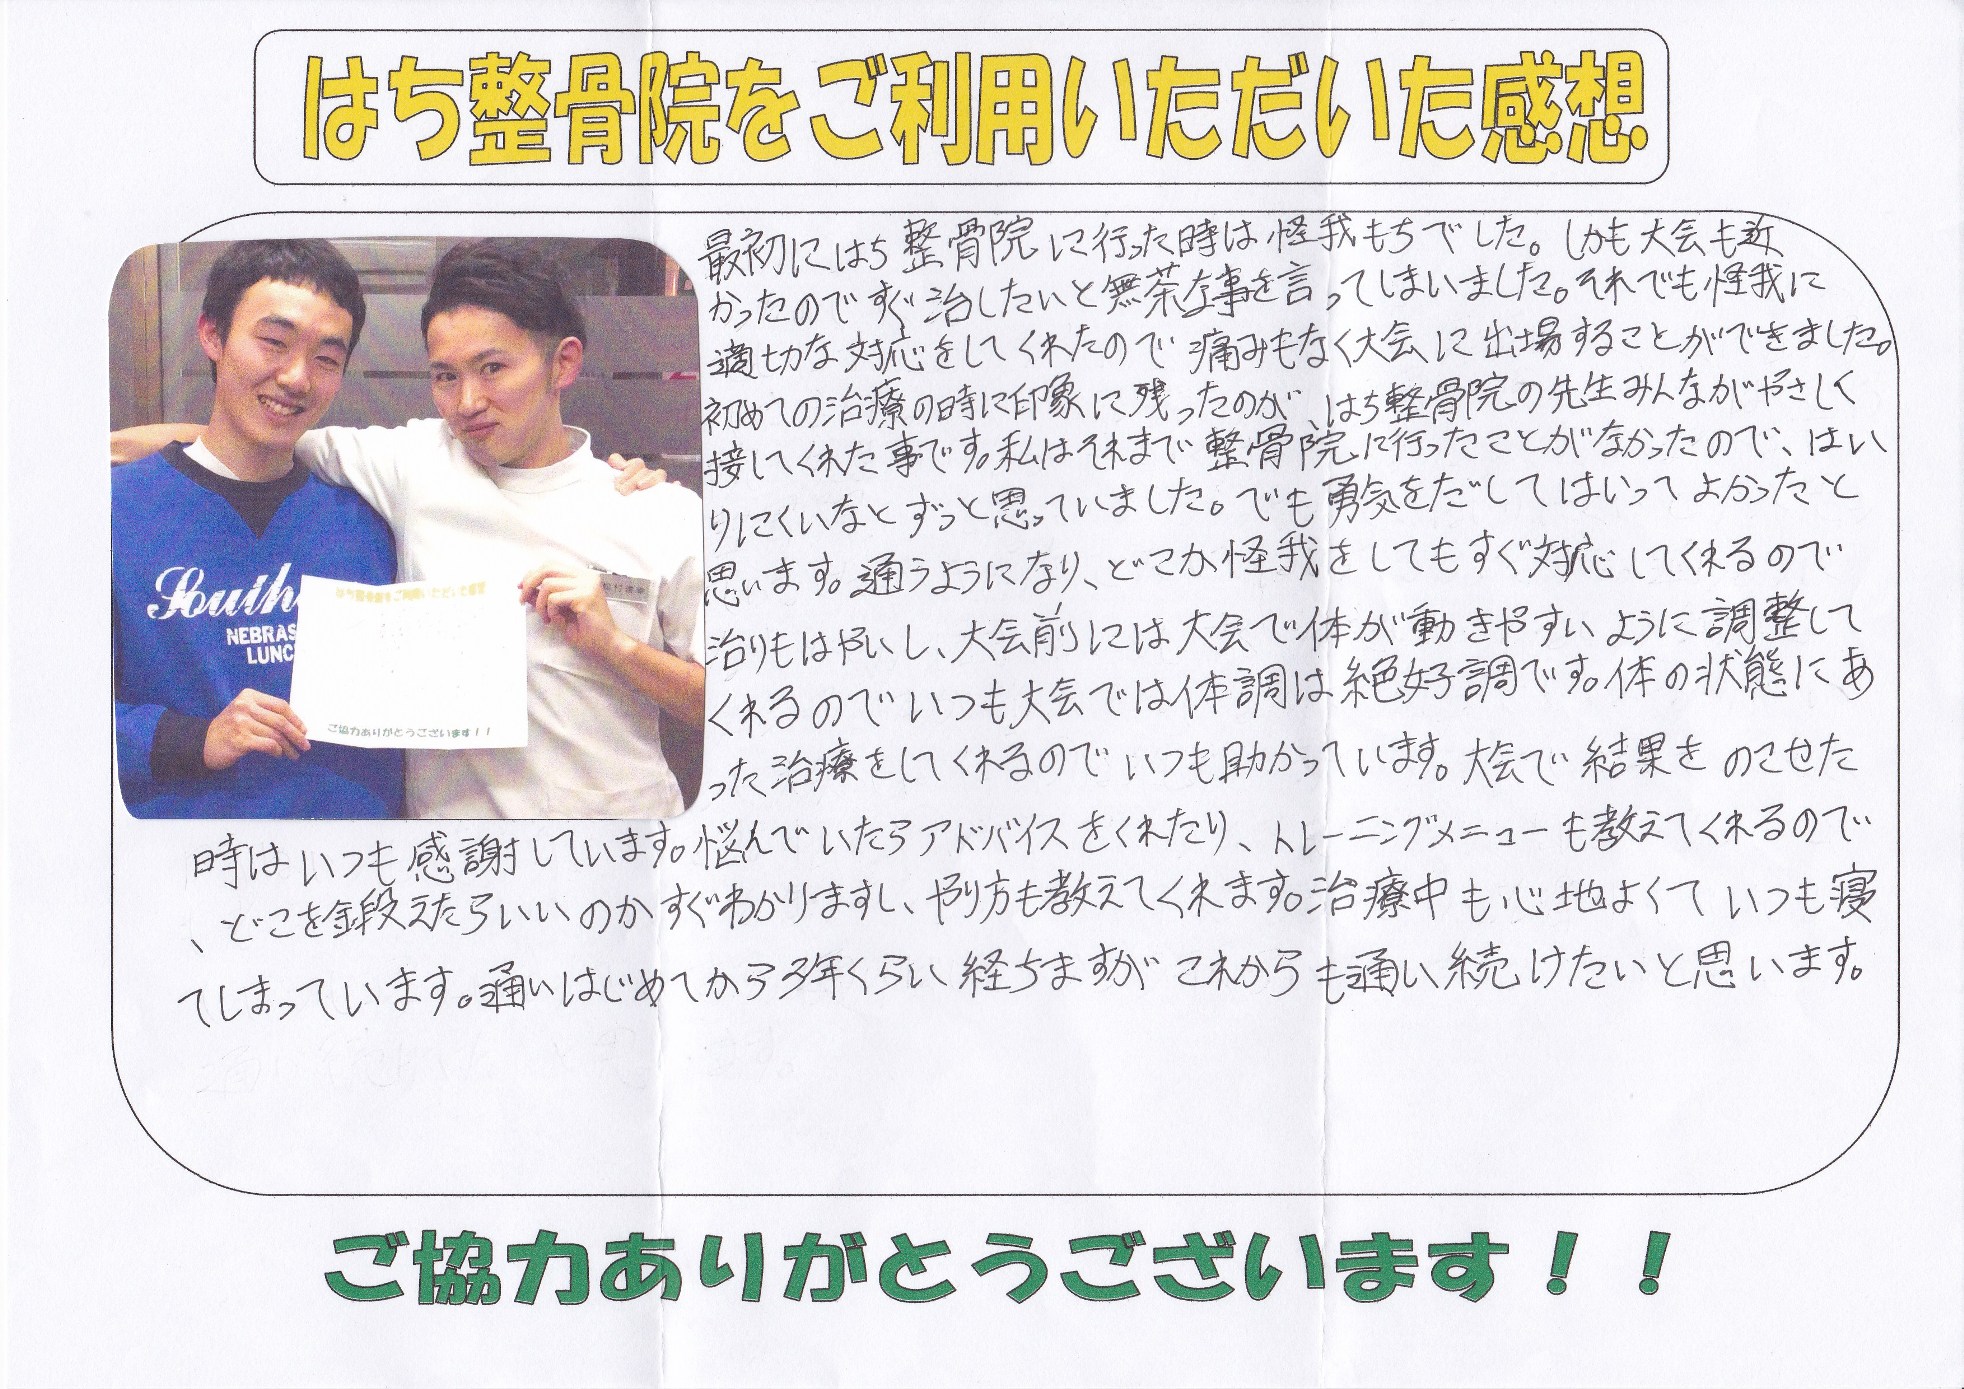 はち整骨院をご利用いただいた感想
最初にはち整骨院に行った時は怪我もちでした。しかも大会も近
かったのですぐ治したいと無茶な事を言ってしまいました。それでも怪我に
適切な対応をしてくれたので痛みもなく大会に出場することができました。
初めての治療の時に印象に残ったのが、はち整骨院の先生みんながやさしく
接してくれた事です。私はそれまで整骨院に行ったことがなかったので、はい
りにくいなとずっと思っていました。でも勇気をだしてはいってよかったと
思います。通うようになり、どこか怪我をしてもすぐ対応してくれるので
治りもはやいし、大会前には大会で体が動きやすいように調整して
くれるのでいつも大会では体調は絶好調です。体の状態にあ
った治療をしてくれるのでいつも助かっています。大会で結果をのこせた
時はいつも感謝しています。悩んでいたらアドバイスをくれたり、トレーニングメニューも教えてくれるので
、どこを鍛えたらいいのかすぐわかりますし、やり方も教えてくれます。治療中も心地よくていつも寝
てしまっています。通いはじめてから3年くらい経ちますがこれからも通い続けたいと思います。
South
NEBRAS
LUNC
はち整骨院をご利用いただいた感想
ご協力ありがとうございます！！
ご協力ありがとうございます！！